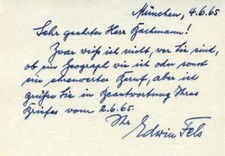 München, 4.6.65
Sehr geehrter Herr Bachmann!
Zwar weiß ich nicht, wer Sie sind,
ob ein Geograph wie ich oder sonst
ein ehrenwerter Beruf, aber ich
grüße Sie in Beantwortung Ihres
Briefes vom 2.6.65.
Ihr Edwin Fels